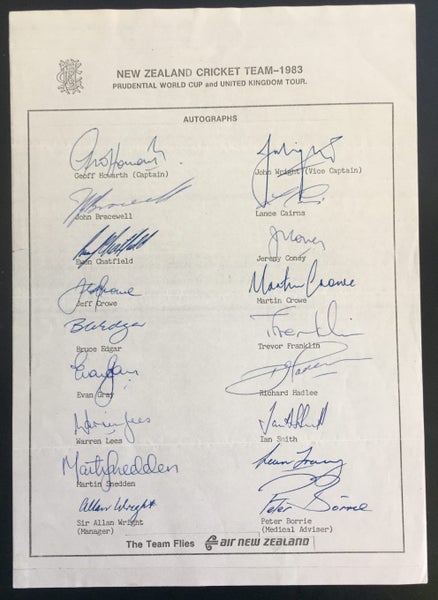 NEW ZEALAND CRICKET TEAM-1983
PRUDENTIAL WORLD CUP and UNITED KINGDOM TOUR.
AUTOGRAPHS
Geoff Howarth (Captain)
John Wright (Vice Captain)
J Bracewell
John Bracewell
Lance Cairns
Ewen Chatfield
Jeremy Coney
Martin Crowe
Jeff Crowe
Martin Crowe
B Edgar
T Franklin
Bruce Edgar
Trevor Franklin
Evan Gray
Evan Gray
Richard Hadlee
Warren Lees
Warren Lees
Ian Smith
Martin Snedden
Martin Snedden
Allan Wright
Peter Borrie
Sir Allan Wright
(Manager)
Peter Borrie
(Medical Adviser)
The Team Flies air new zealand